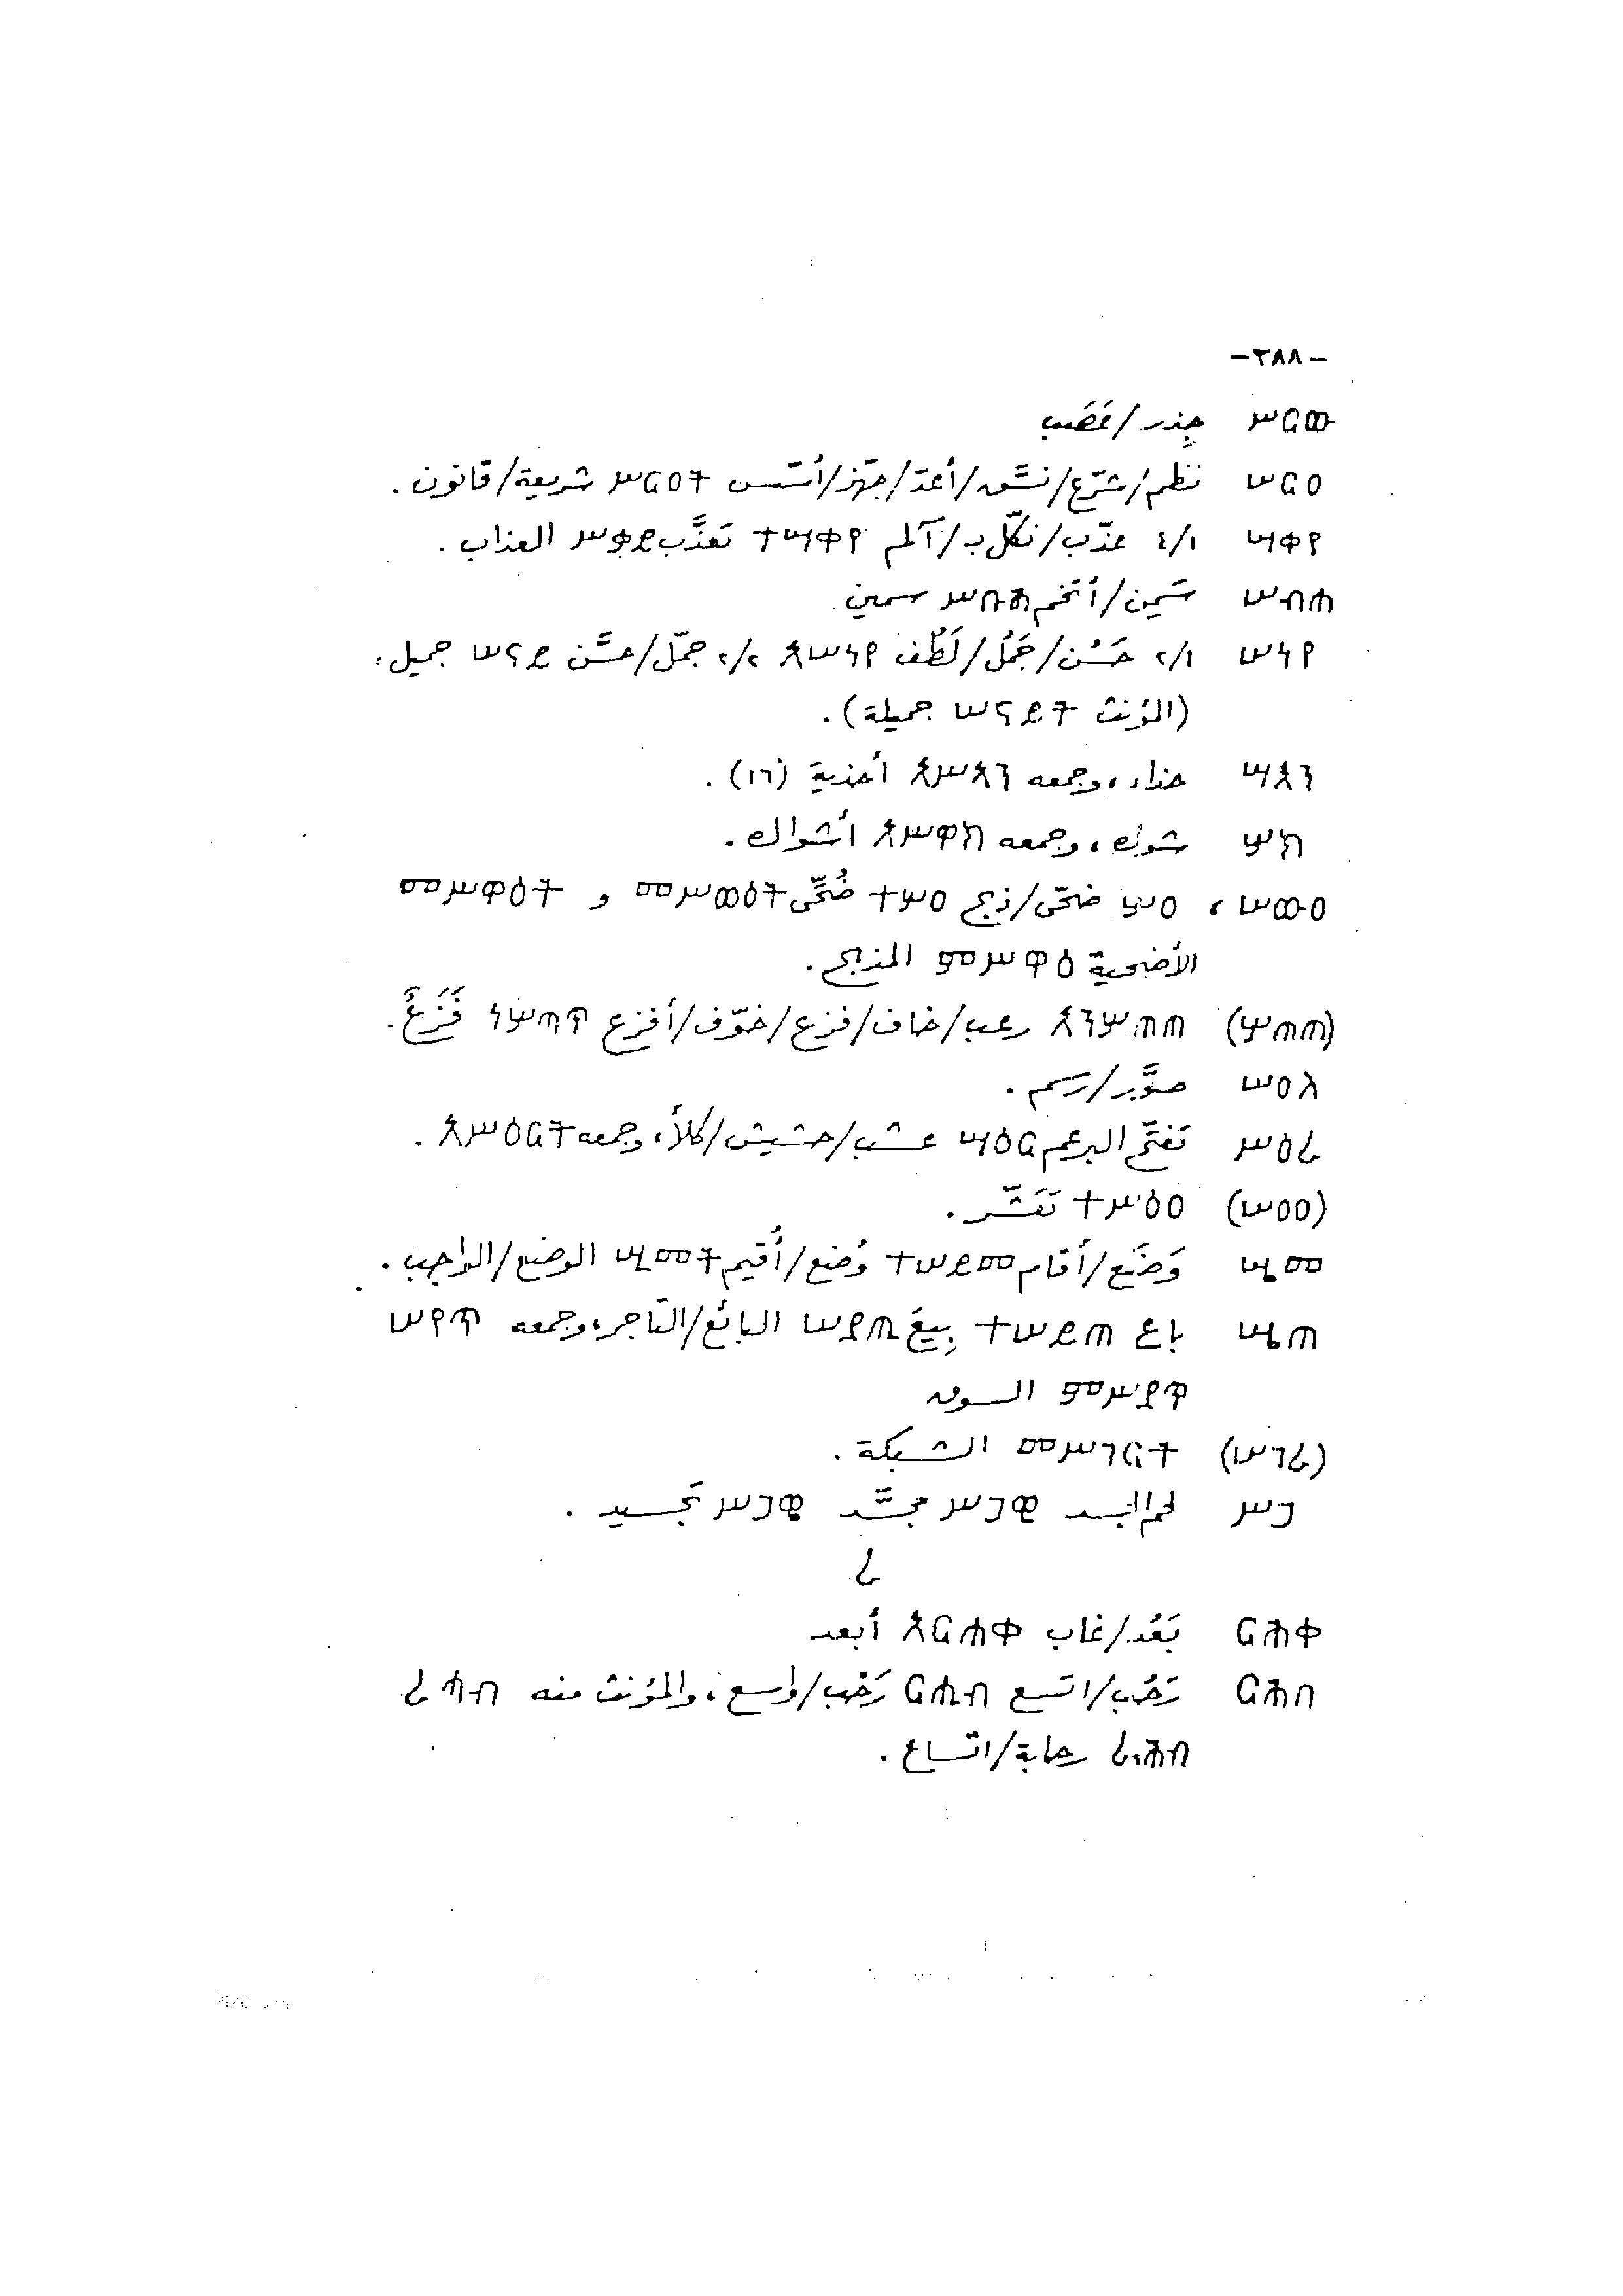 -٢٨٨-
ሥርው جِذر/عَصَب
ሠርዐ نظم/شرّع/نسَّق/أعدّ/جهّز/أسّس ሥርዐት شريعة/قانون.
ሣቀየ ١/٤ عذّب/نكّل بـ/آلم ተሣቀየ تعذَّب ሥቃይ العذاب.
ሠብሐ سَمِن/أتخم ሥቡሕ سمين
ሠነየ ١/٢ حَسُن/جَمُل/لَطُف አሠነየ ٢/٢ جمّل/حسَّن ሠናይ جميل.
(المؤنث ሠናይት جميلة).
ሣእን حذاء، وجمعه አሥእን أحذية (١٦).
ሦክ شوك، وجمعه አሥዋክ أشواك.
ሠውዐ، ሦዐ ضحّى/ذبح ተሦዐ ضُحِّي መሥውዕት و መሥዋዕት
الأضحية ምሥዋዕ المذبح.
(ሦጠጠ) አንሦጠጠ رعب/خاف/فزع/خوّف/أفزع فَزَعٌ.
ሠዐለ صوَّر/رَسَم.
ሥዕረ تفتّح البرعم ሣዕር عشب/حشيش/كلأ، وجمعه አሥዕርት.
(ሠዐዐ) ተሥዕዐ تقشّر.
ሤመ وَضَع/أقام ተሠይመ وُضع/أُقيم ሢመት الوضع/الواجب.
ሤጠ باع ተሠይጠ بِيعَ ሠያጢ البائع/التاجر، وجمعه ሠየጥ
ምሥያጥ السوق
(ሠገረ) መሥገርት الشبكة.
ሥጋ لحم الجسد ሥግው مجسَّد ሥጋዌ تجسيد.
ረ
ርሕቀ بَعُد/غاب አርሐቀ أبعد
ርሕበ رَحُب/اتسع ርሒብ رَحْب/واسع، والمؤنث منه ረሓብ
ርሕብ رحابة/اتساع.